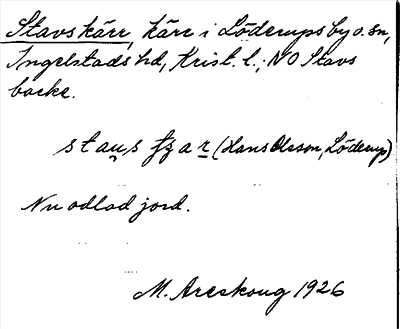 Stavskärr, kärr i Löderups by o. sn,
Ingelstads hd, Krist. l.; NO Stavs
backe.
stau̯s fʒar (Hans Olsson, Löderup)
Nu odlad jord.
M. Areskoug 1926